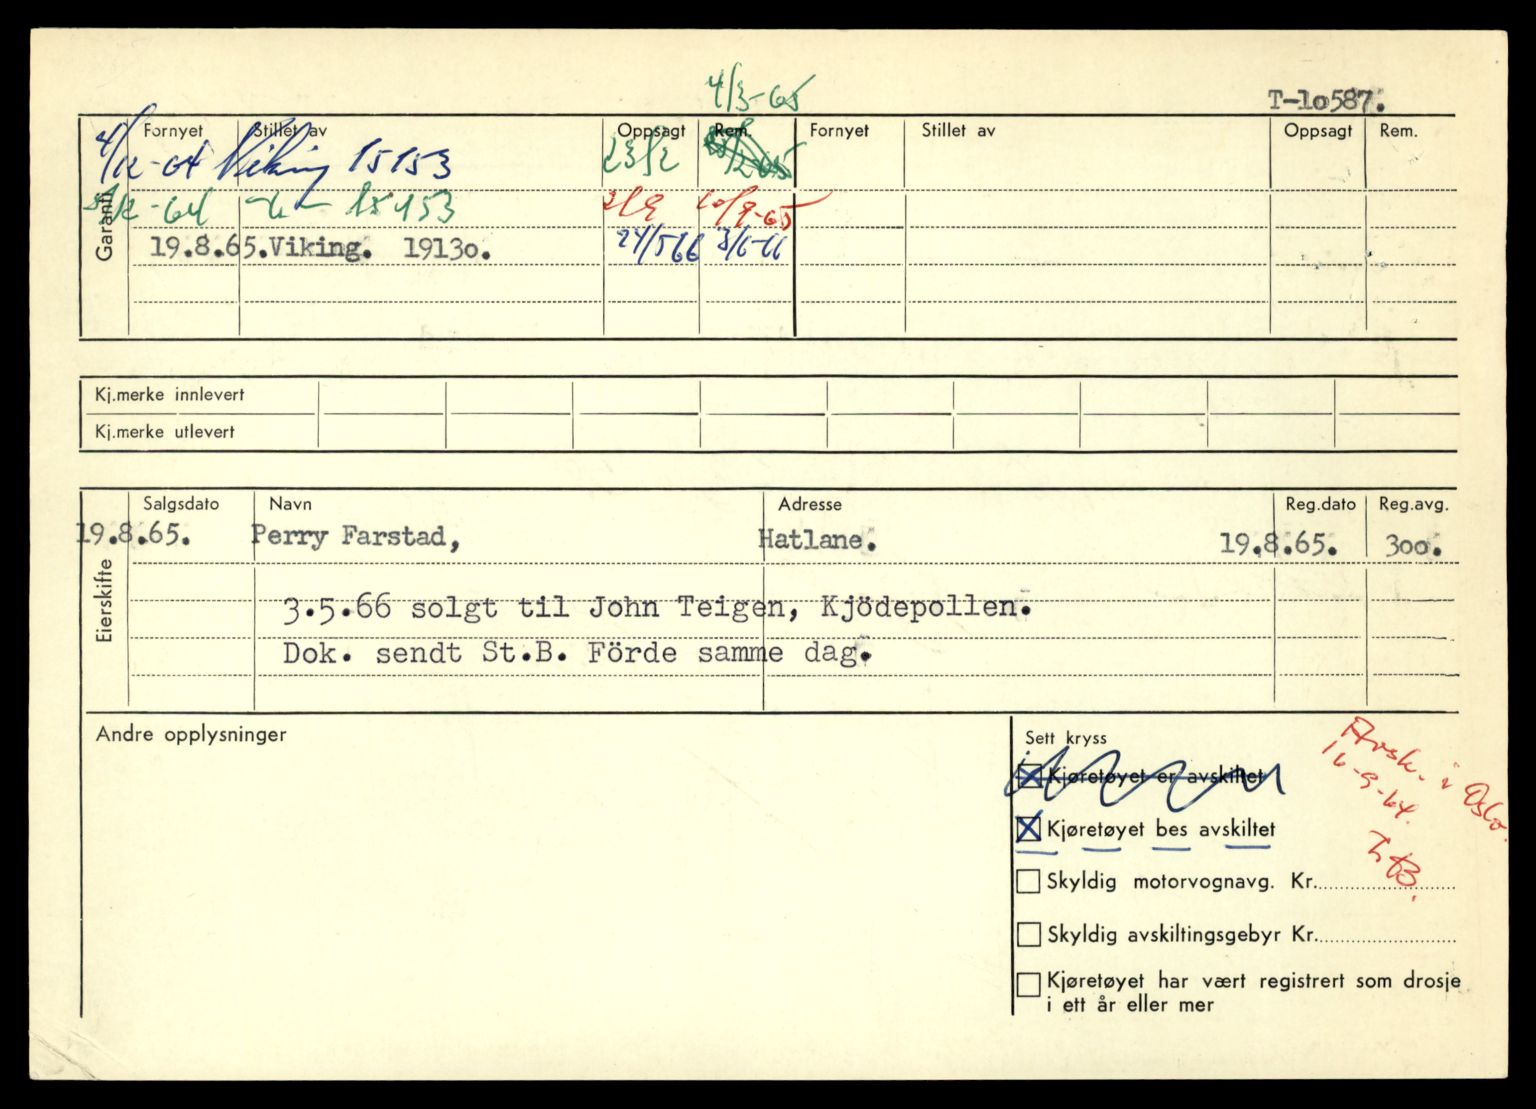 4/3-65
T-lo587.
Garanti
Fornyet Stillet av Oppsagt Rem. Fornyet Stillet av Oppsagt Rem.
4/12-64 Viking 15153 23/2
-64 -"- 15153 2/9 10/9-65
19.8.65. Viking. 1913o. 24/5 66 3/6-66
Kj.merke innlevert
Kj.merke utlevert
Eierskifte
Salgsdato Navn Adresse Reg.dato Reg.avg.
19.8.65. Perry Farstad, Hatlane. 19.8.65. 3oo.
3.5.66 solgt til John Teigen, Kjödepollen.
Dok. sendt St.B. Förde samme dag.
Andre opplysninger
Sett kryss
Kjøretøyet er avskiltet
Kjøretøyet bes avskiltet
Avsk. i Oslo.
16-9-64.
Skyldig motorvognavg. Kr.
Skyldig avskiltingsgebyr Kr.
Kjøretøyet har vært registrert som drosje
i ett år eller mer